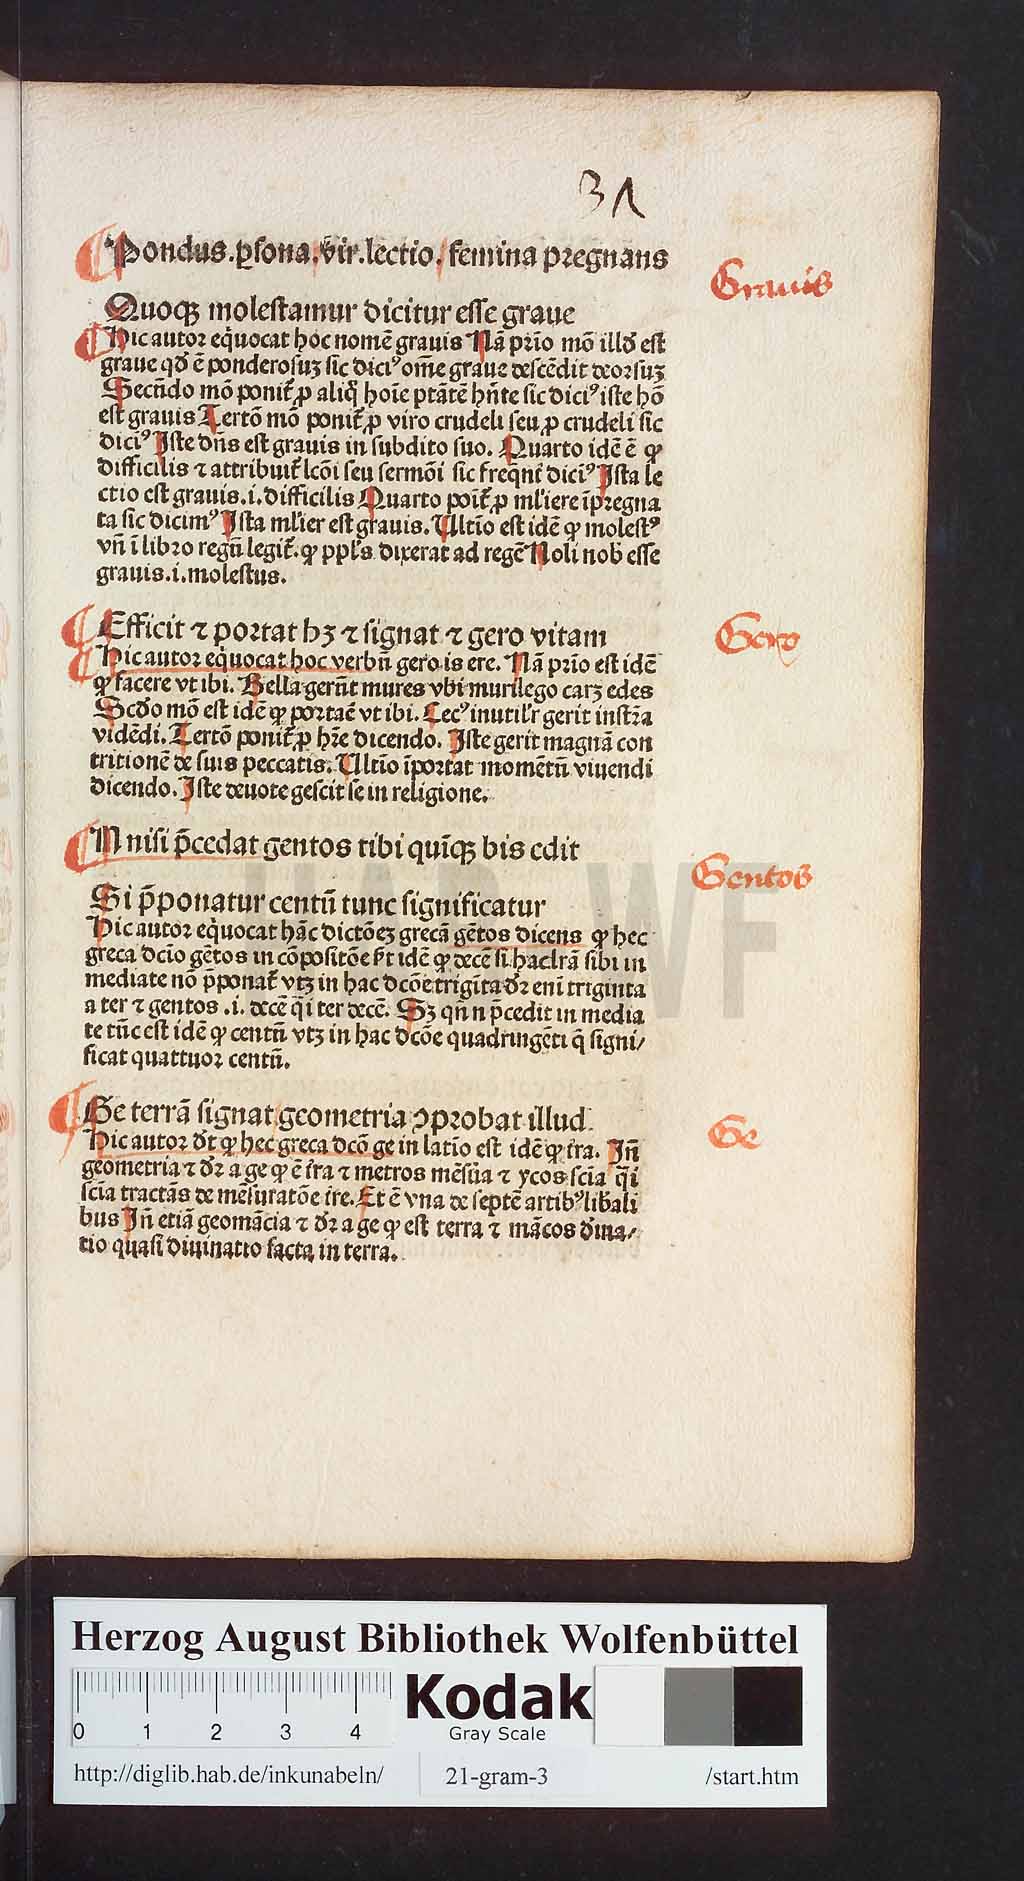 31
Pondus.ꝑsona.vir.lectio.femina pregnans
Grauis
Quoqꝫ molestamur dicitur esse graue
Hic autor eq̇uocat hoc nomē grauis Nā prīo mō illd̕ est
graue qd̕ ē ponderosuꝫ sic diciꝰ om̄e graue descēdit deorsuꝫ
Secūdo mō ponit̕ ꝓ aliq̄ hoīe ptātē hn̄te sic diciꝰ iste hō
est grauis Tertō mō ponit̕ ꝓ viro crudeli seu ꝓ crudeli sic
diciꝰ Iste dn̄s est grauis in subdito suo. Quarto idē ē ꝙ
difficilis ⁊ attribuit̕ lcōi seu sermōi sic freq̄nt̕ diciꝰ Ista le
ctio est grauis.i.difficilis Quarto poīt̕ ꝓ ml̕iere īpregna
ta sic dicimꝰ Ista ml̕ier est grauis. Ultīo est idē ꝙ molestꝰ
vn̄ ī libro regū legit̕. ꝙ ppl̕s dixerat ad regē Noli nob̕ esse
grauis.i.molestus.
Efficit ⁊ portat hꝫ ⁊ signat ⁊ gero vitam
Gero
Hic autor eq̇uocat hoc verbū gero is ere. Nā prīo est idē
ꝙ facere vt ibi. Bella gerūt mures vbi murilego carꝫ edes
Scd̕o mō est idē ꝙ portaē vt ibi. Lecꝰ inutil̕r gerit instr̄a
vidēdi. Tertō ponit̕ ꝓ hr̄e dicendo. Iste gerit magnā con
tritionē de suis peccatis. Ultīo īportat momētū viuendi
dicendo. Iste deuote gescit se in religione.
N nisi p̄cedat gentos tibi quīqꝫ bis edit
Gentos
Si p̄ponatur centū tunc significatur
Hic autor eq̇uocat hāc dictōeꝫ grecā gētos dicens ꝙ hec
greca dcīo gētos in cōpositōe est idē ꝙ decē si hāc lrā sibi in
mediate nō p̄ponat̕ vtꝫ in hac dcōe trigīta dr̄ enī triginta
a ter ⁊ gentos .i. decē q̄i ter decē. Sꝫ qn̄ n p̄cedit in media
te tūc est idē ꝙ centū vtꝫ in hac dcōe quadringēti q̄ signi/
ficat quattuor centū.
Ge terrā signat geometria ꝯprobat illud.
Ge
Hic autor dt̕ ꝙ hec greca dcō ge in latīo est idē ꝙ t̕ra. In̄
geometria ⁊ dr̄ a ge ꝙ ē t̕ra ⁊ metros mēsūa ⁊ ycos scīa q̄i
scīa tractās de mēsuratōe t̕re. Et ē vna de septē artibꝰ lib̕ali
bus In̄ etiā geomācia ⁊ dr̄ a ge ꝙ est terra ⁊ mācos diuina/
tio quasi diuinatio facta in terra.
HAB WF
Herzog August Bibliothek Wolfenbüttel
0 1 2 3 4
Kodak
Gray Scale
http://diglib.hab.de/inkunabeln/ 21-gram-3 /start.htm